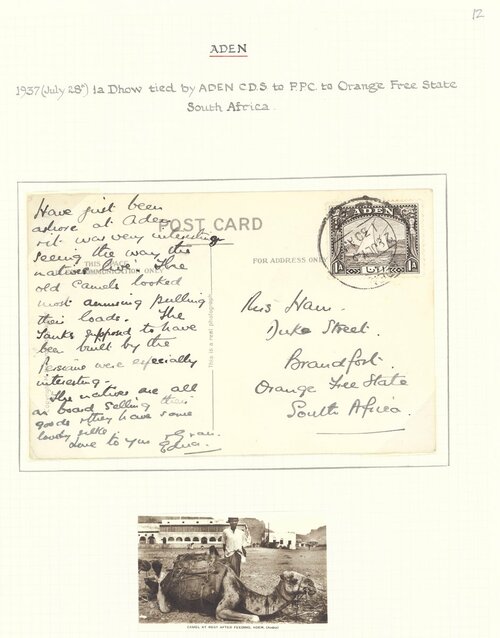 12
ADEN
1937 (July 28th) 1a Dhow tied by ADEN C.D.S to P.P.C. to Orange Free State
South Africa.
POST CARD
THIS SPACE
COMMUNICATION ONLY
FOR ADDRESS ONLY
This is a real photograph
Have just been
ashore at Aden
it was very interesting
seeing the way the
natives live. The
old Camels looked
most amusing pulling
their loads. The
Tanks supposed to have
been built by the
Persians were especially
interesting.
The natives are all
on board selling their
goods & they have some
lovely silks.
Love to you
Edna.
ADEN
1A 1A
Miss Ham.
Duke Street.
Brandfort.
Orange Free State
South Africa.
CAMEL AT REST AFTER FEEDING, ADEN (Arabia)